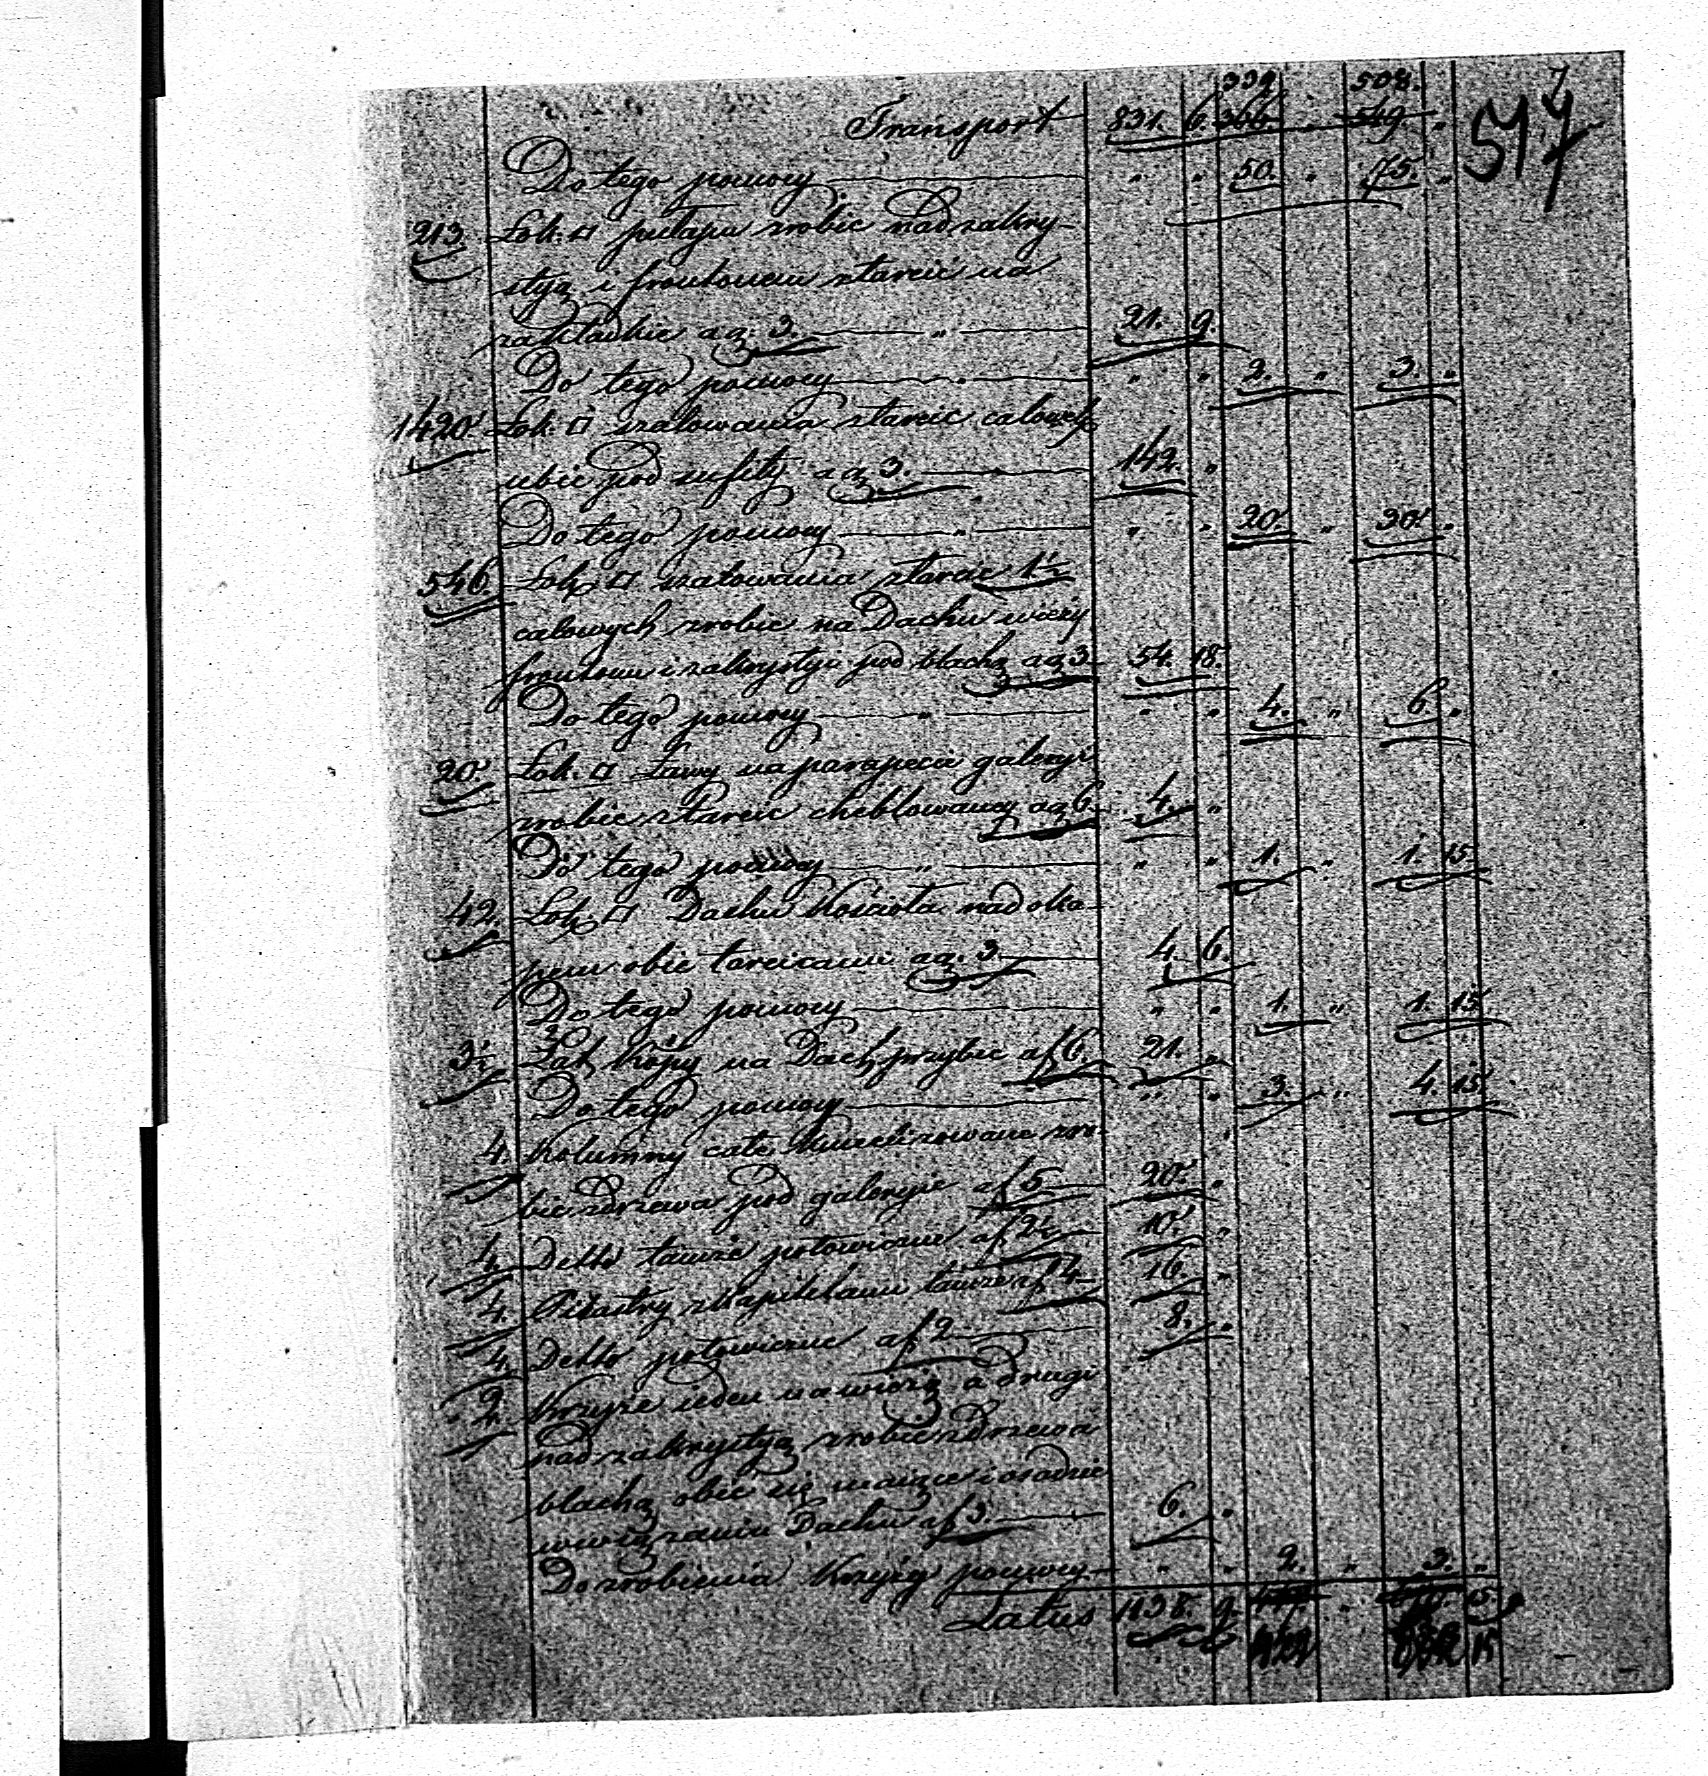 7
339 508.
Transport 831. 6. 366. " 549. " 517
Do tego pomocy " " 50. " 75. "
213. Łok: □ pułapu zrobić nad zakry-
styą i frontonem z tarcic na
zakładkie a g. 3. " 21. 9.
Do tego pomocy " " " 2. " 3. "
1420. Łok. □ szalowania z tarcic calowych
ubić pod sufity a g 3. 142. "
Do tego pomocy " " " 20. " 30. "
546. Łok: □ szalowania z tarcic 1½
calowych zrobić na Dachu wieży
frontonu i zakrystyi pod blachą a g 3 54. 18.
Do tego pomocy " " " 4. " 6. "
20. Łok. □ Ławy na parapecie galeryi
zrobić z tarcic cheblowanej a g 6. 4. "
Do tego pomocy " " " 1. " 1. 15.
42. Łok: □ Dachu Kościoła nad oka-
pem obić tarcicami a g. 3. 4. 6.
Do tego pomocy " " 1. " 1. 15
3½ Łat Kópy na Dach przybić af 6. 21. "
Do tego pomocy " " 3. " 4. 15
4. Kolumny całe zro-
bić z drzewa pod galeryie af 5 20. "
4. Detto tamże połowiczne af 2½ 10. "
4. Pilastry z kapitelami tamże af 4 16. "
4. Detto połowiczne af 2 8. "
2 Krzyże ieden na wieżą a drugi
nad zakrystyą zrobić z drzewa
blachą obić się maiące i osadzić
w wiązaniu Dachu af 3. 6. "
Do zrobienia Krzyży pomocy " " 2. " 3. "
Latus 1138. 9. " 15
422 15